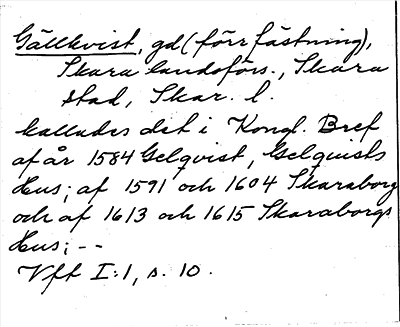 Gällkvist, gd (förr fästning),
Skara landsförs., Skara
stad, Skar. l.
kallades det i Kongl. Bref
af år 1584 Gelqvist, Gelquists
Hus; af 1591 och 1604 Skaraborg
och af 1613 och 1615 Skaraborgs
Hus; --
Vft I:1, s. 10.